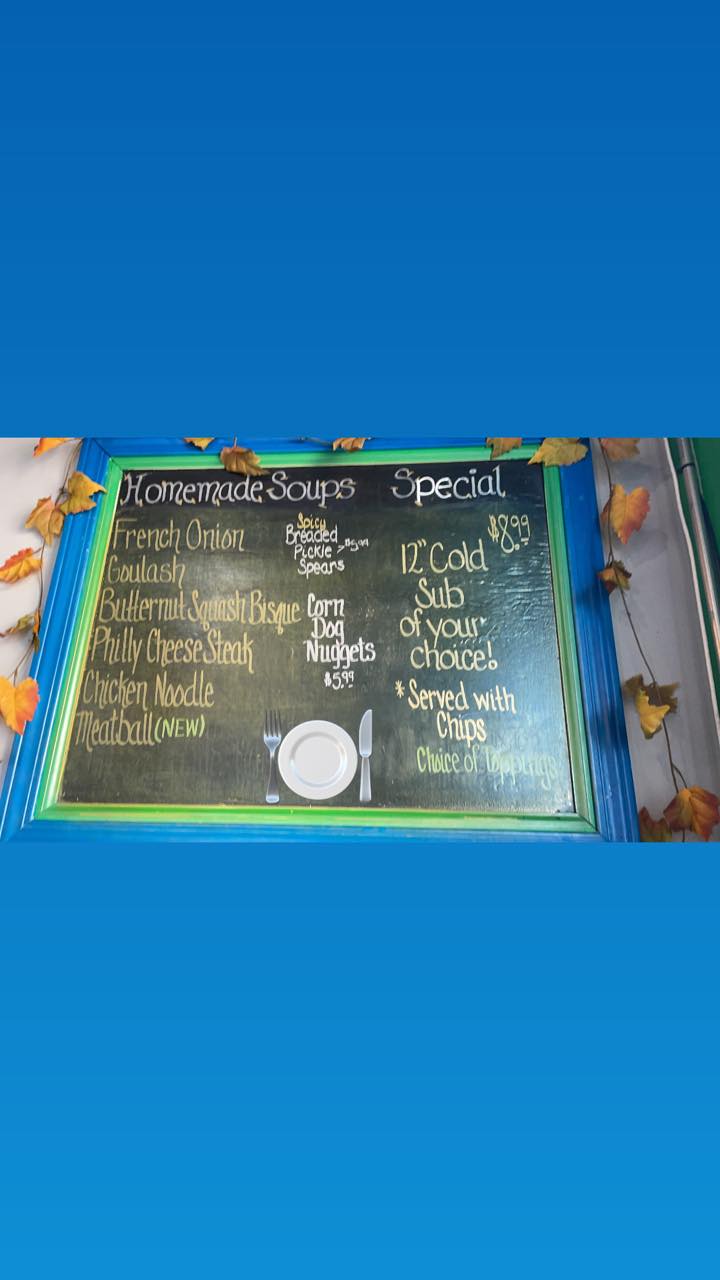 Homemade Soups
French Onion
Goulash
Butternut Squash Bisque
Philly Cheese Steak
Chicken Noodle
Meatball (NEW)
Spicy
Breaded
Pickle > $5.99
Spears
Corn
Dog
Nuggets
$5.99
Special
$8.99
12" Cold
Sub
of your
choice!
*Served with
Chips
Choice of Toppings